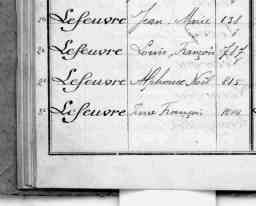 Lefeuvre Jean Marie 131
Lefeuvre Louis François 787
Lefeuvre Alphonse Noël 815
Lefeuvre François